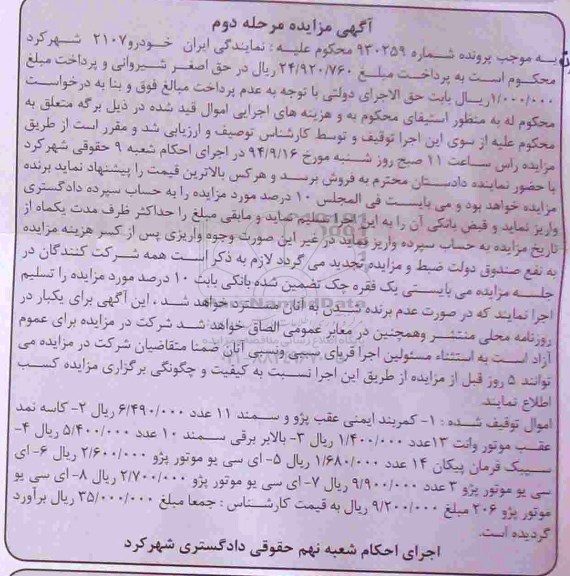 آگهی مزایده مرحله دوم
به موجب پرونده شماره ۹۳۰۲۵۹ محکوم علیه : نمایندگی ایران خودرو۲۱۰۷ شهرکرد
محکوم است به پرداخت مبلغ ۲۴/۹۲۰/۷۶۰ ریال در حق اصغر شیروانی و پرداخت مبلغ
۱/۰۰۰/۰۰۰ریال بابت حق الاجرای دولتی با توجه به عدم پرداخت مبالغ فوق و بنا به درخواست
محکوم له به منظور استیفای محکوم به و هزینه های اجرایی اموال قید شده در ذیل برگه متعلق به
محکوم علیه از سوی این اجرا توقیف و توسط کارشناس توصیف و ارزیابی شد و مقرر است از طریق
مزایده راس ساعت ۱۱ صبح روز شنبه مورخ ۹۴/۹/۱۶ در اجرای احکام شعبه ۹ حقوقی شهرکرد
با حضور نماینده دادستان محترم به فروش برسد و هرکس بالاترین قیمت را پیشنهاد نماید برنده
مزایده خواهد بود و می بایست فی المجلس ۱۰ درصد مورد مزایده را به حساب سپرده دادگستری
واریز نماید و قبض بانکی آن را به این اجرا تسلیم نماید و مابقی مبلغ را حداکثر ظرف مدت یکماه از
تاریخ مزایده به حساب سپرده واریز نماید در غیر این صورت وجوه واریزی پس از کسر هزینه مزایده
به نفع صندوق دولت ضبط و مزایده تجدید می گردد لازم به ذکر است همه شرکت کنندگان در
جلسه مزایده می بایستی یک فقره چک تضمین شده بانکی بابت ۱۰ درصد مورد مزایده را تسلیم
اجرا نمایند که در صورت عدم برنده شدن به آنان مسترد خواهد شد . این آگهی برای یکبار در
روزنامه محلی منتشر وهمچنین در معابر عمومی الصاق خواهد شد شرکت در مزایده برای عموم
آزاد است به استثناء مسئولین اجرا قربای سببی ونسبی آنان ضمنا متقاضیان شرکت در مزایده می
توانند ۵ روز قبل از مزایده از طریق این اجرا نسبت به کیفیت و چگونگی برگزاری مزایده کسب
اطلاع نمایند.
اموال توقیف شده : ۱- کمربند ایمنی عقب پژو و سمند ۱۱ عدد ۶/۴۹۰/۰۰۰ ریال ۲- کاسه نمد
عقب موتور وانت ۱۳عدد ۱/۴۰۰/۰۰۰ ریال ۳- بالابر برقی سمند ۱۰ عدد ۵/۴۰۰/۰۰۰ ریال ۴-
سیبک فرمان پیکان ۱۴ عدد ۱/۶۸۰/۰۰۰ ریال ۵- ای سی یو موتور پژو ۲/۶۰۰/۰۰۰ ریال ۶- ای
سی یو موتور پژو ۳ عدد ۹/۹۰۰/۰۰۰ ریال ۷- ای سی یو موتور پژو ۲/۷۰۰/۰۰۰ ریال ۸- ای سی یو
موتور پژو ۲۰۶ مبلغ ۹/۲۰۰/۰۰۰ ریال به قیمت کارشناس : جمعا مبلغ ۳۵/۰۰۰/۰۰۰ ریال برآورد
گردیده است.
اجرای احکام شعبه نهم حقوقی دادگستری شهرکرد